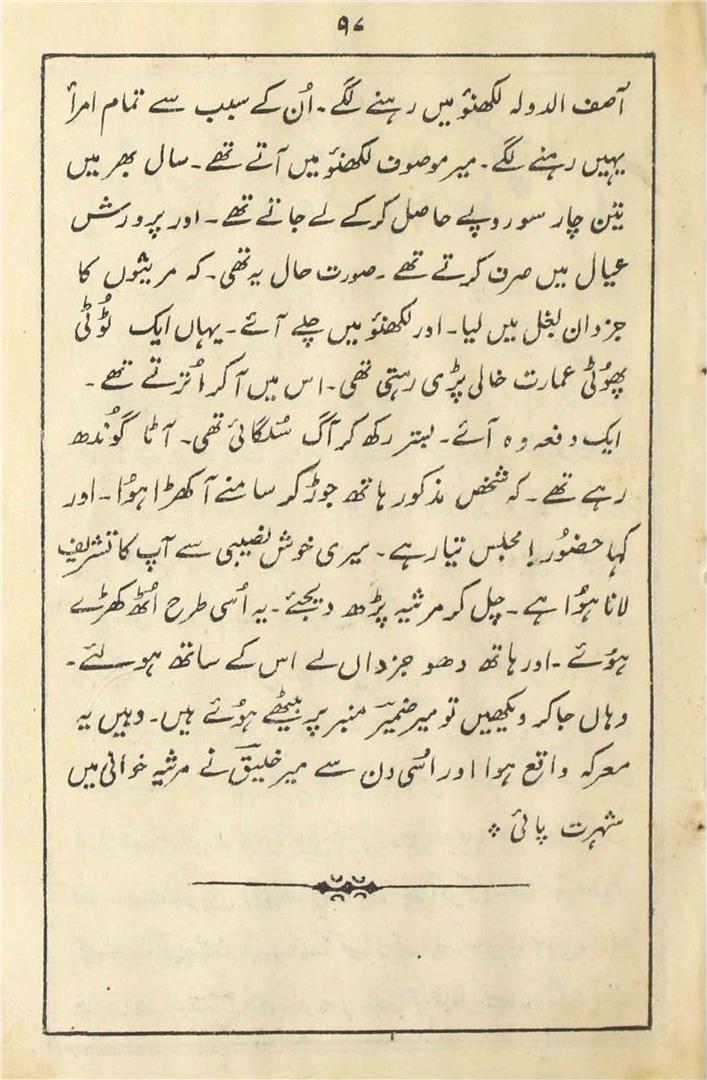 ۹۷
آصف الدولہ لکھنؤ میں رہنے لگے۔ اُن کے سبب سے تمام امرأ
یہیں رہنے لگے۔ میر موصوف لکھنؤ میں آتے تھے۔ سال بھر میں
تین چار سو روپے حاصل کرکے لے جاتے تھے۔ اور پرورش
عیال میں صرف کرتے تھے۔ صورت حال یہ تھی۔ کہ مریثوں کا
جزدان بغل میں لیا۔ اور لکھنؤ میں چلے آئے۔ یہاں ایک ٹوُٹی
پھوُٹی عمارت خالی پڑی رہتی تھی۔ اس میں آکر اُترتے تھے۔
ایک دفعہ وہ آئے۔ بستر رکھ کر آگ سُلگائی تھی۔ آٹا گوُندھ
رہے تھے۔ کہ شخص مذکور ہاتھ جوڑ کر سامنے آکھڑا ہوُا۔ اور
کہا حضوُر! مجلس تیار ہے۔ میری خوش نصیبی سے آپ کا تشریف
لانا ہوُا ہے۔ چل کر مرثیہ پڑھ دیجئے۔ یہ اُسی طرح اُٹھ کھڑے
ہوُئے۔ اور ہاتھ دھو جزدان لے اس کے ساتھ ہو لئے۔
وہاں جاکر دیکھیں تو میر ضمیرؔ منبر پر بیٹھے ہوُئے ہیں۔ وہیں یہ
معرکہ واقع ہوا اور اُسی دن سے میر خلیقؔ نے مرثیہ خوانی میں
شہرت پائی ⁘